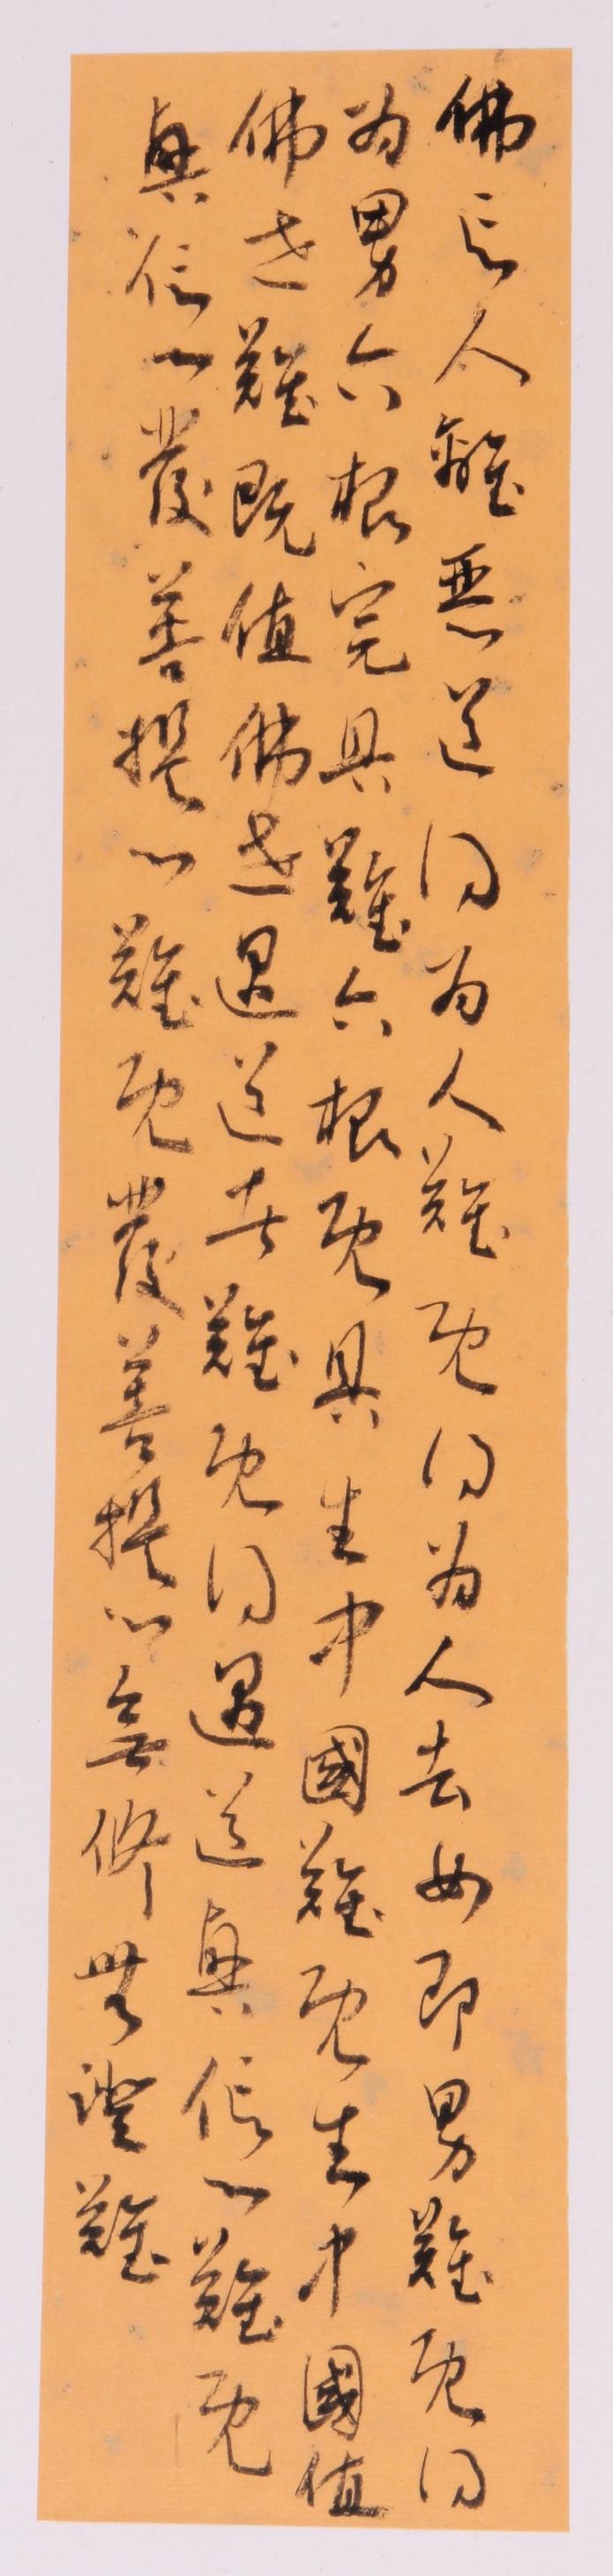 佛言人離惡道得為人難既得為人去女即男難既得
為男六根完具難六根既具生中國難既生中國值
佛世難既值佛世遇道者難既得遇道興信心難既
興信心發菩提心難既發菩提心無修無證難